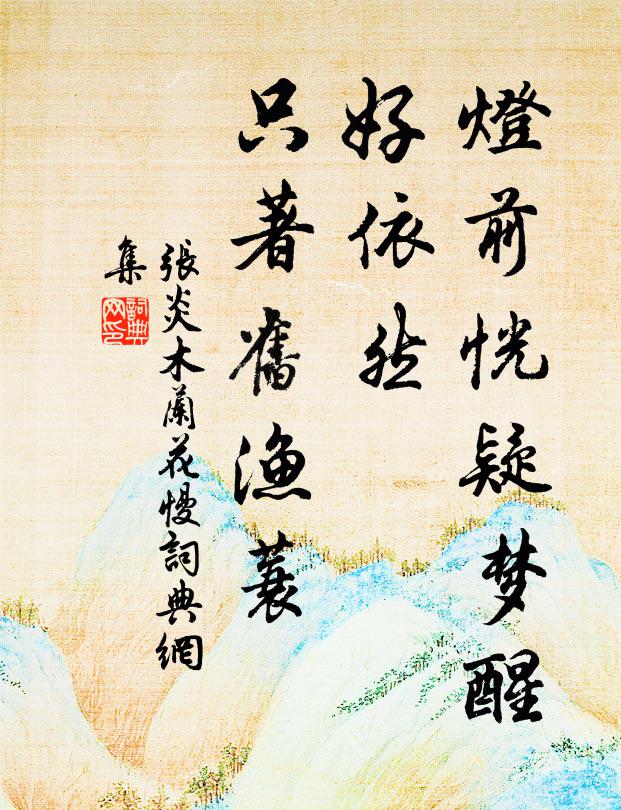 燈前恍疑梦醒
好依然
只著舊漁蓑
張炎木蘭花慢詞典網
集
詞典
网印